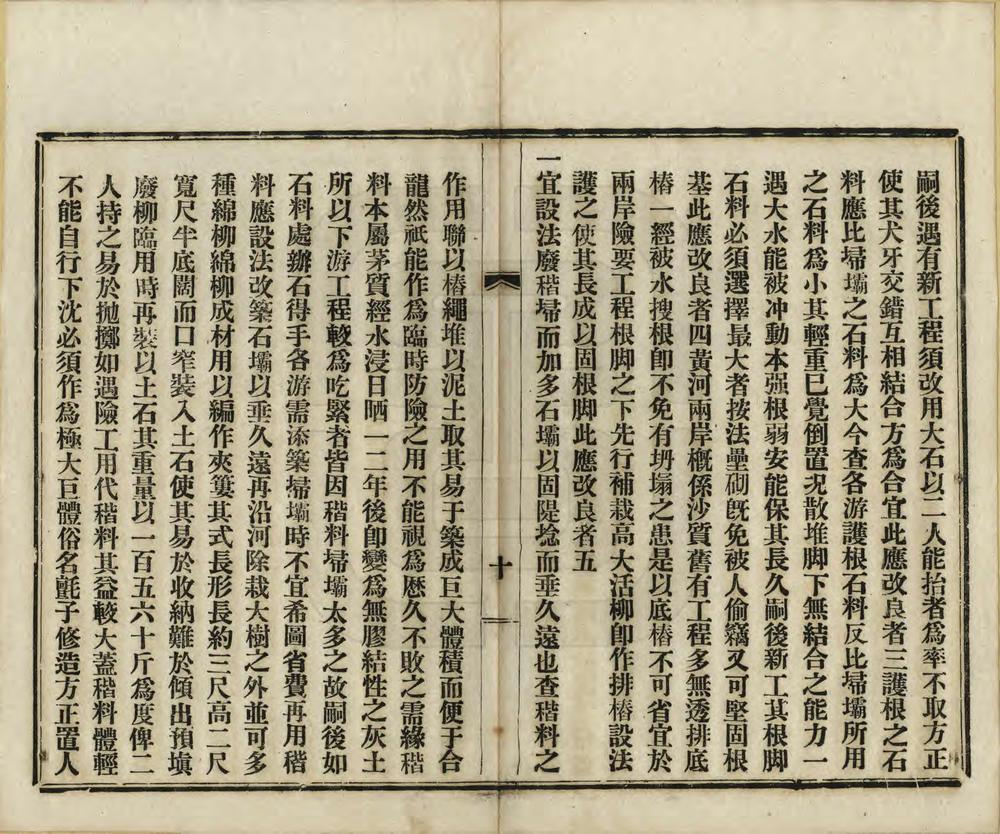 嗣後遇有新工程須改用大石以二人能抬者爲率不取方正
使其犬牙交錯互相結合方爲合宜此應改良者三護根之石
料應比埽壩之石料爲大今查各游護根石料反比埽壩所用
之石料爲小其輕重已覺倒置况散堆脚下無結合之能力一
遇大水能被冲動本强根弱安能保其長久嗣後新工其根脚
石料必須選擇最大者按法壘砌旣免被人偷竊又可堅固根
基此應改良者四黃河兩岸槪係沙質舊有工程多無透排底
樁一經被水搜根卽不免有坍塌之患是以底樁不可省宜於
兩岸險要工程根脚之下先行補栽高大活柳卽作排樁設法
護之使其長成以固根脚此應改良者五
一宜設法廢稭埽而加多石壩以固隄埝而垂久遠也查稭料之
十
作用聯以樁繩堆以泥土取其易于築成巨大體積而便于合
龍然祇能作爲臨時防險之用不能視爲歷久不敗之需緣稭
料本屬茅質經水浸日晒一二年後卽變爲無膠結性之灰土
所以下游工程較爲吃緊者皆因稭料埽壩太多之故嗣後如
石料處辦石得手各游需添築埽壩時不宜希圖省費再用稭
料應設法改築石壩以垂久遠再沿河除栽大樹之外並可多
種綿柳綿柳成材用以編作夾簍其式長形長約三尺高二尺
寬尺半底闊而口窄裝入土石使其易於收納難於傾出預塡
廢柳臨用時再裝以土石其重量以一百五六十斤爲度俾二
人持之易於拋擲如遇險工用代稭料其益較大蓋稭料體輕
不能自行下沈必須作爲極大巨體俗名氈子修造方正置人